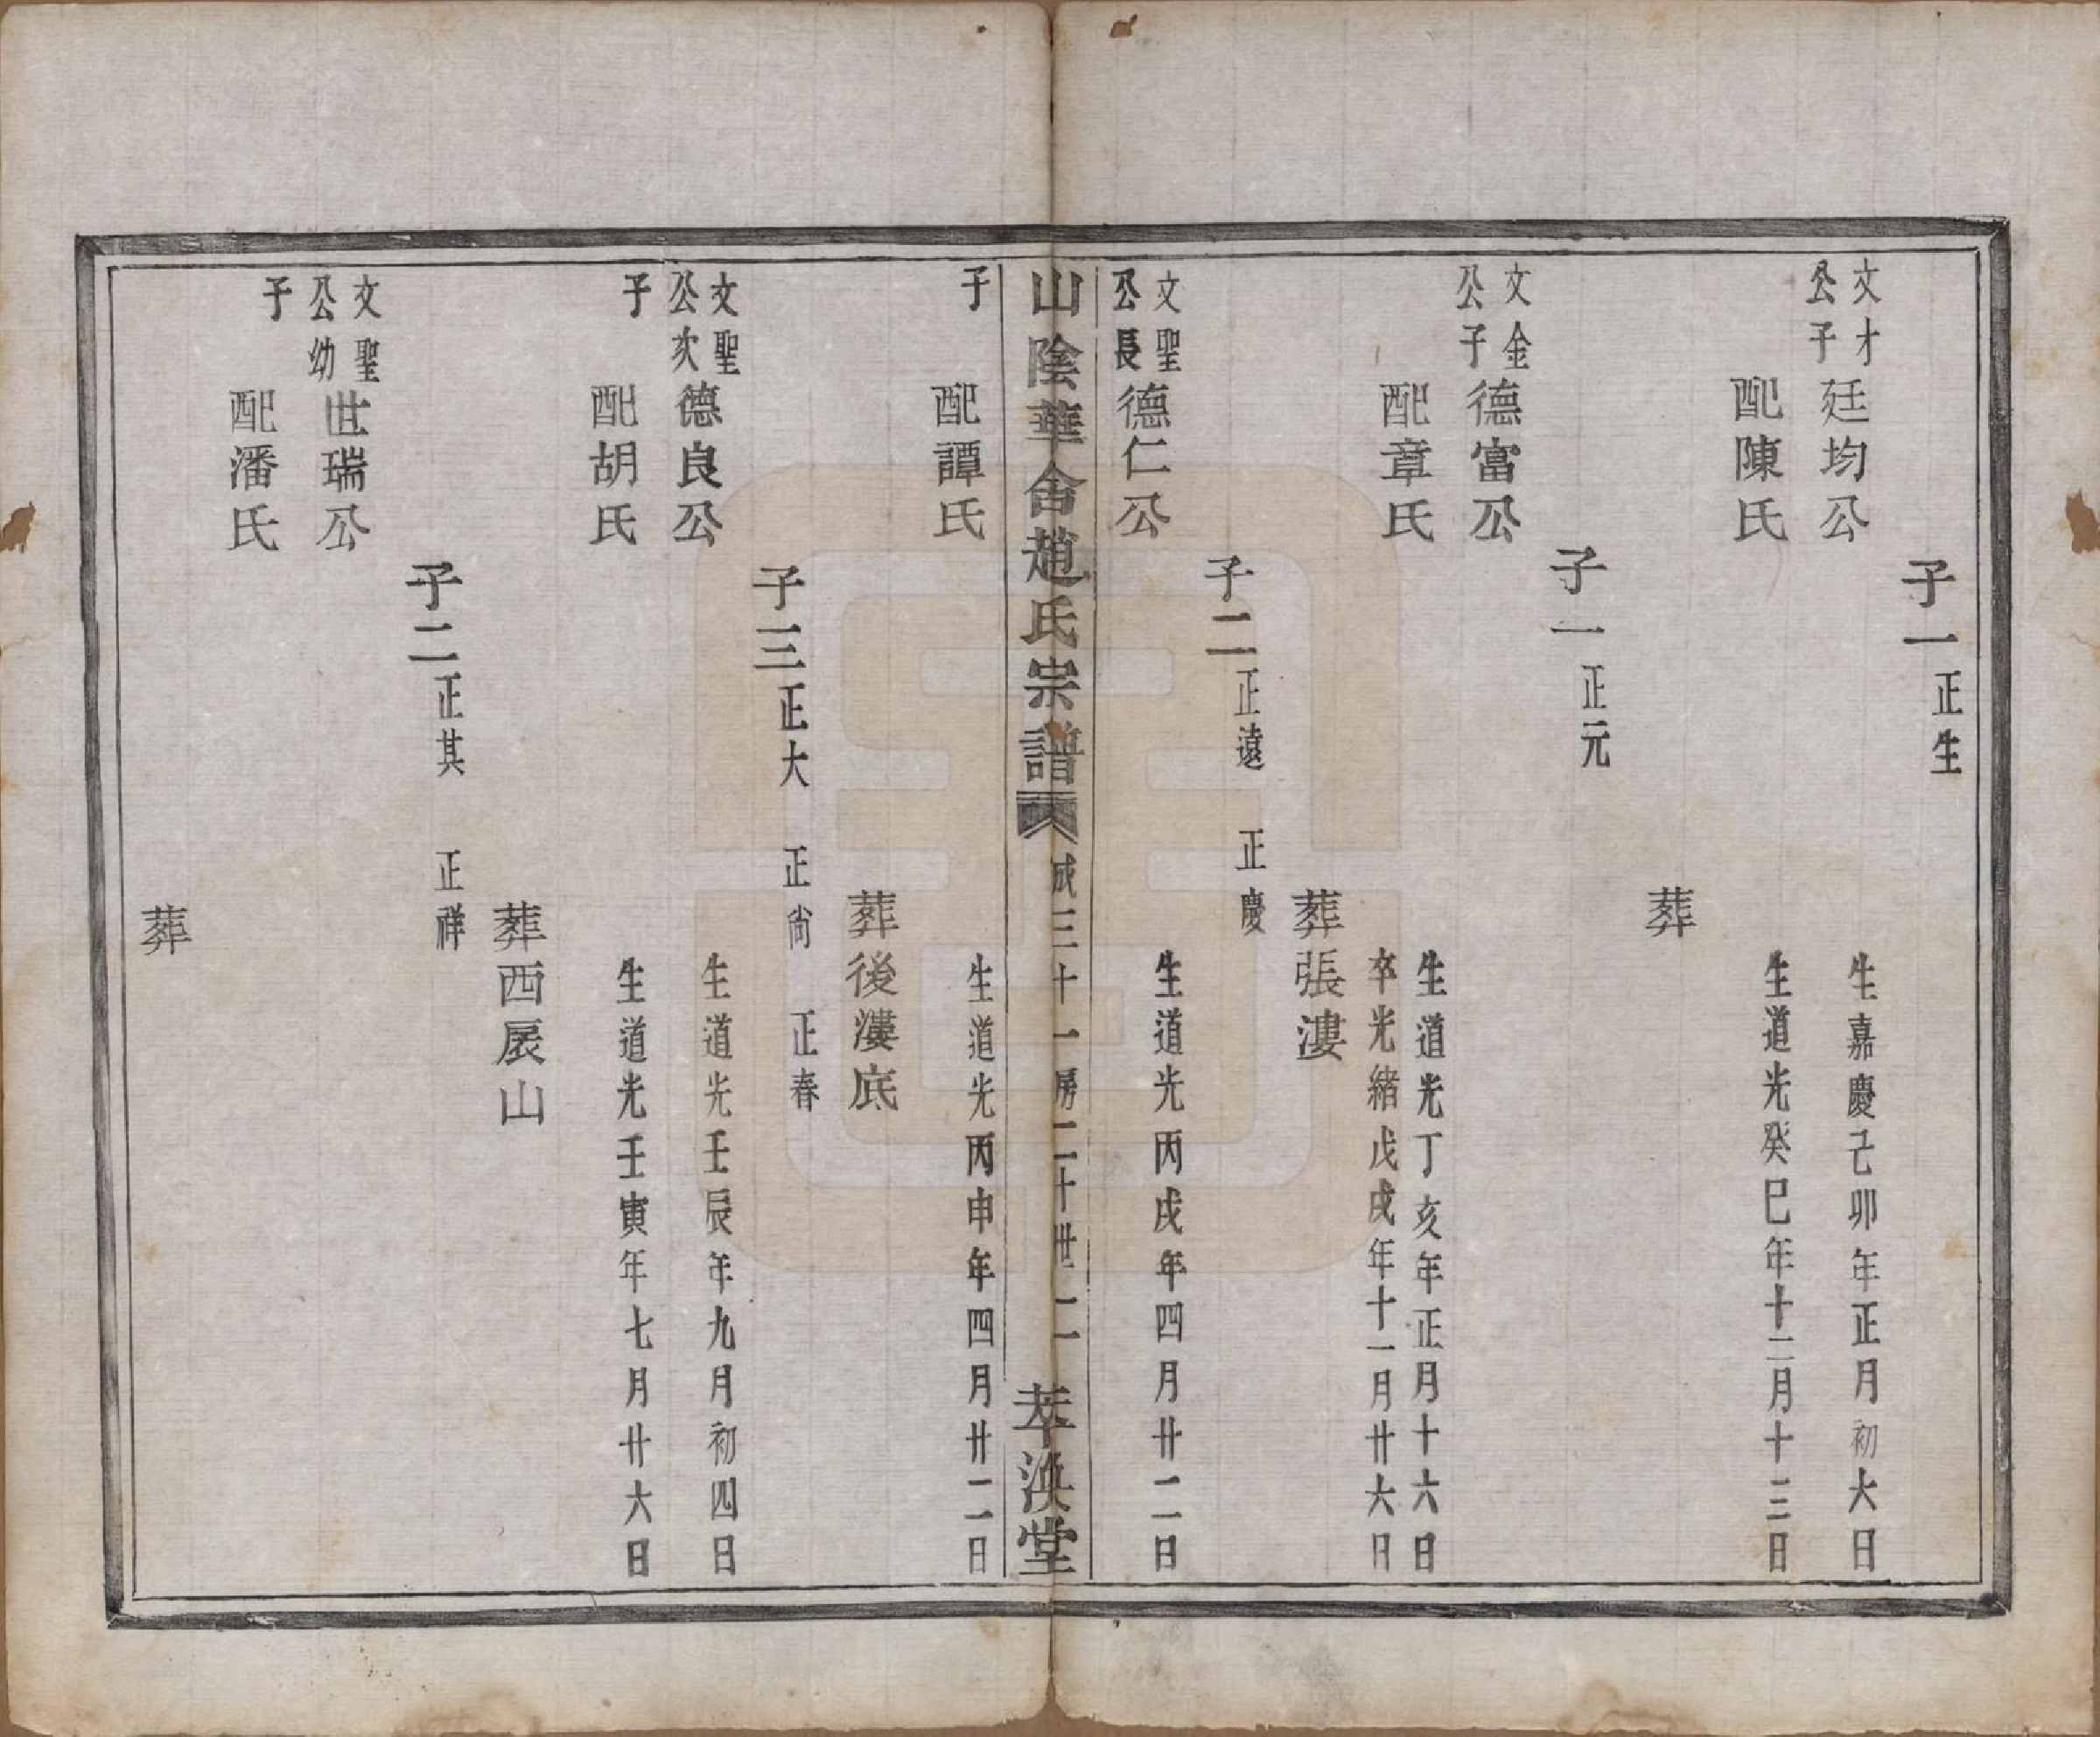 子一正生
文才公子廷均公 生嘉慶己卯年正月初六日
配陳氏 生道光癸巳年十二月十三日
葬
子一正元
文金公子德富公 生道光丁亥年正月十六日
配章氏 卒光緒戊戌年十一月廿六日
葬張漊
子二正遠 正慶
文聖公長德仁公 生道光丙戌年四月廿二日
山陰華舍趙氏宗譜 成三十一房二十世二 萃渙堂
子 配譚氏 生道光丙申年四月廿二日
葬後漊底
子三正大 正尚 正春
文聖公次德良公 生道光壬辰年九月初四日
子 配胡氏 生道光壬寅年七月廿六日
葬西扆山
子二正其 正祥
文聖公幼世瑞公
子 配潘氏
葬